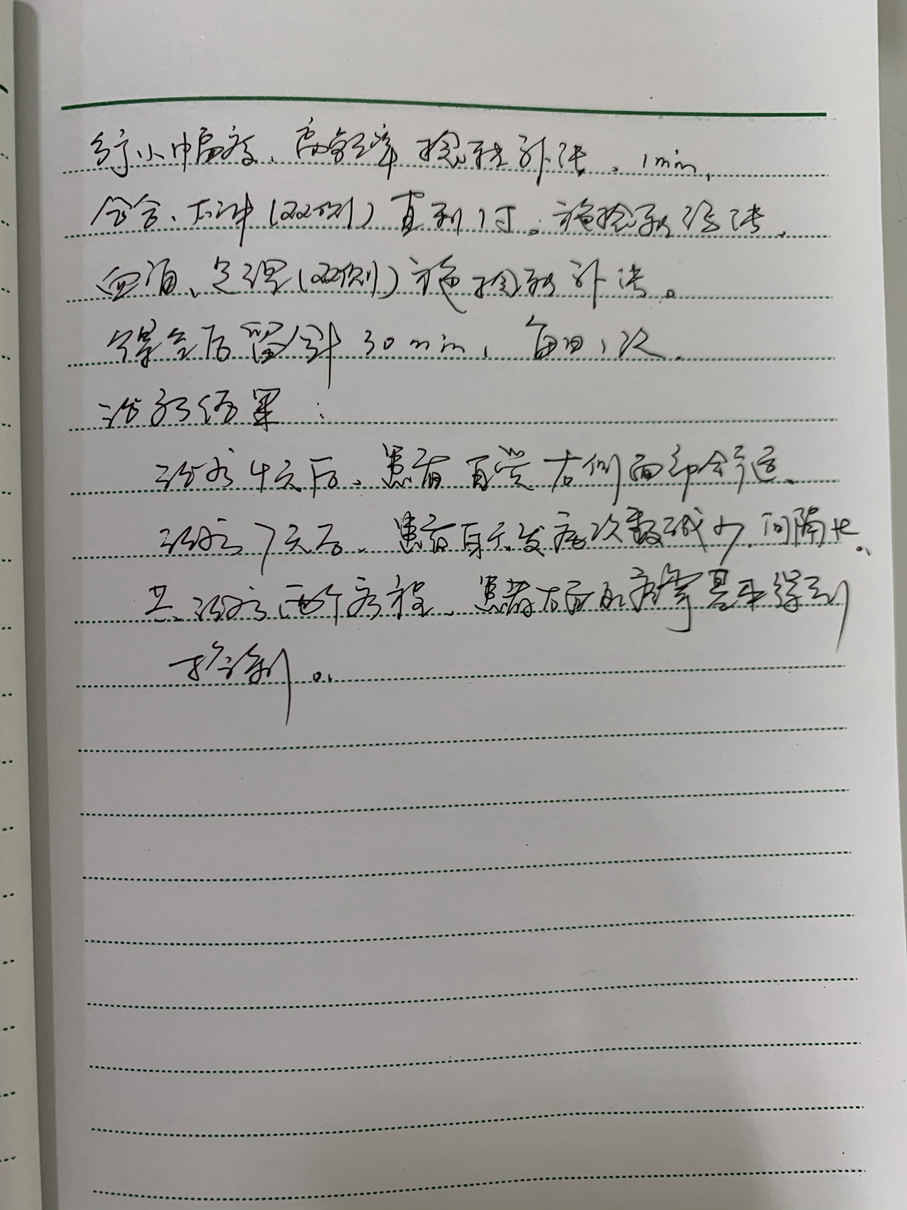 行小幅度、高频率捻转补法，1min，
合谷、太冲（双侧）直刺1寸。施捻转泻法，
血海、足三里（双侧）施捻转补法。
得气后留针30min，每日1次.
治疗结果：
治疗4天后、患者自觉右侧面部舒适、
治疗7天后、患者每天发病次数减少，间隔长。
共治疗两个疗程，患者右面肌痉挛基本得到
控制。